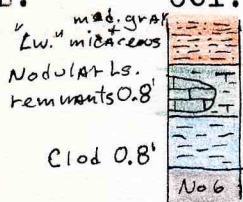 med. gray
"Lw." micaceous
Nodular Ls.
remnants 0.8'
Clod 0.8'
No 6